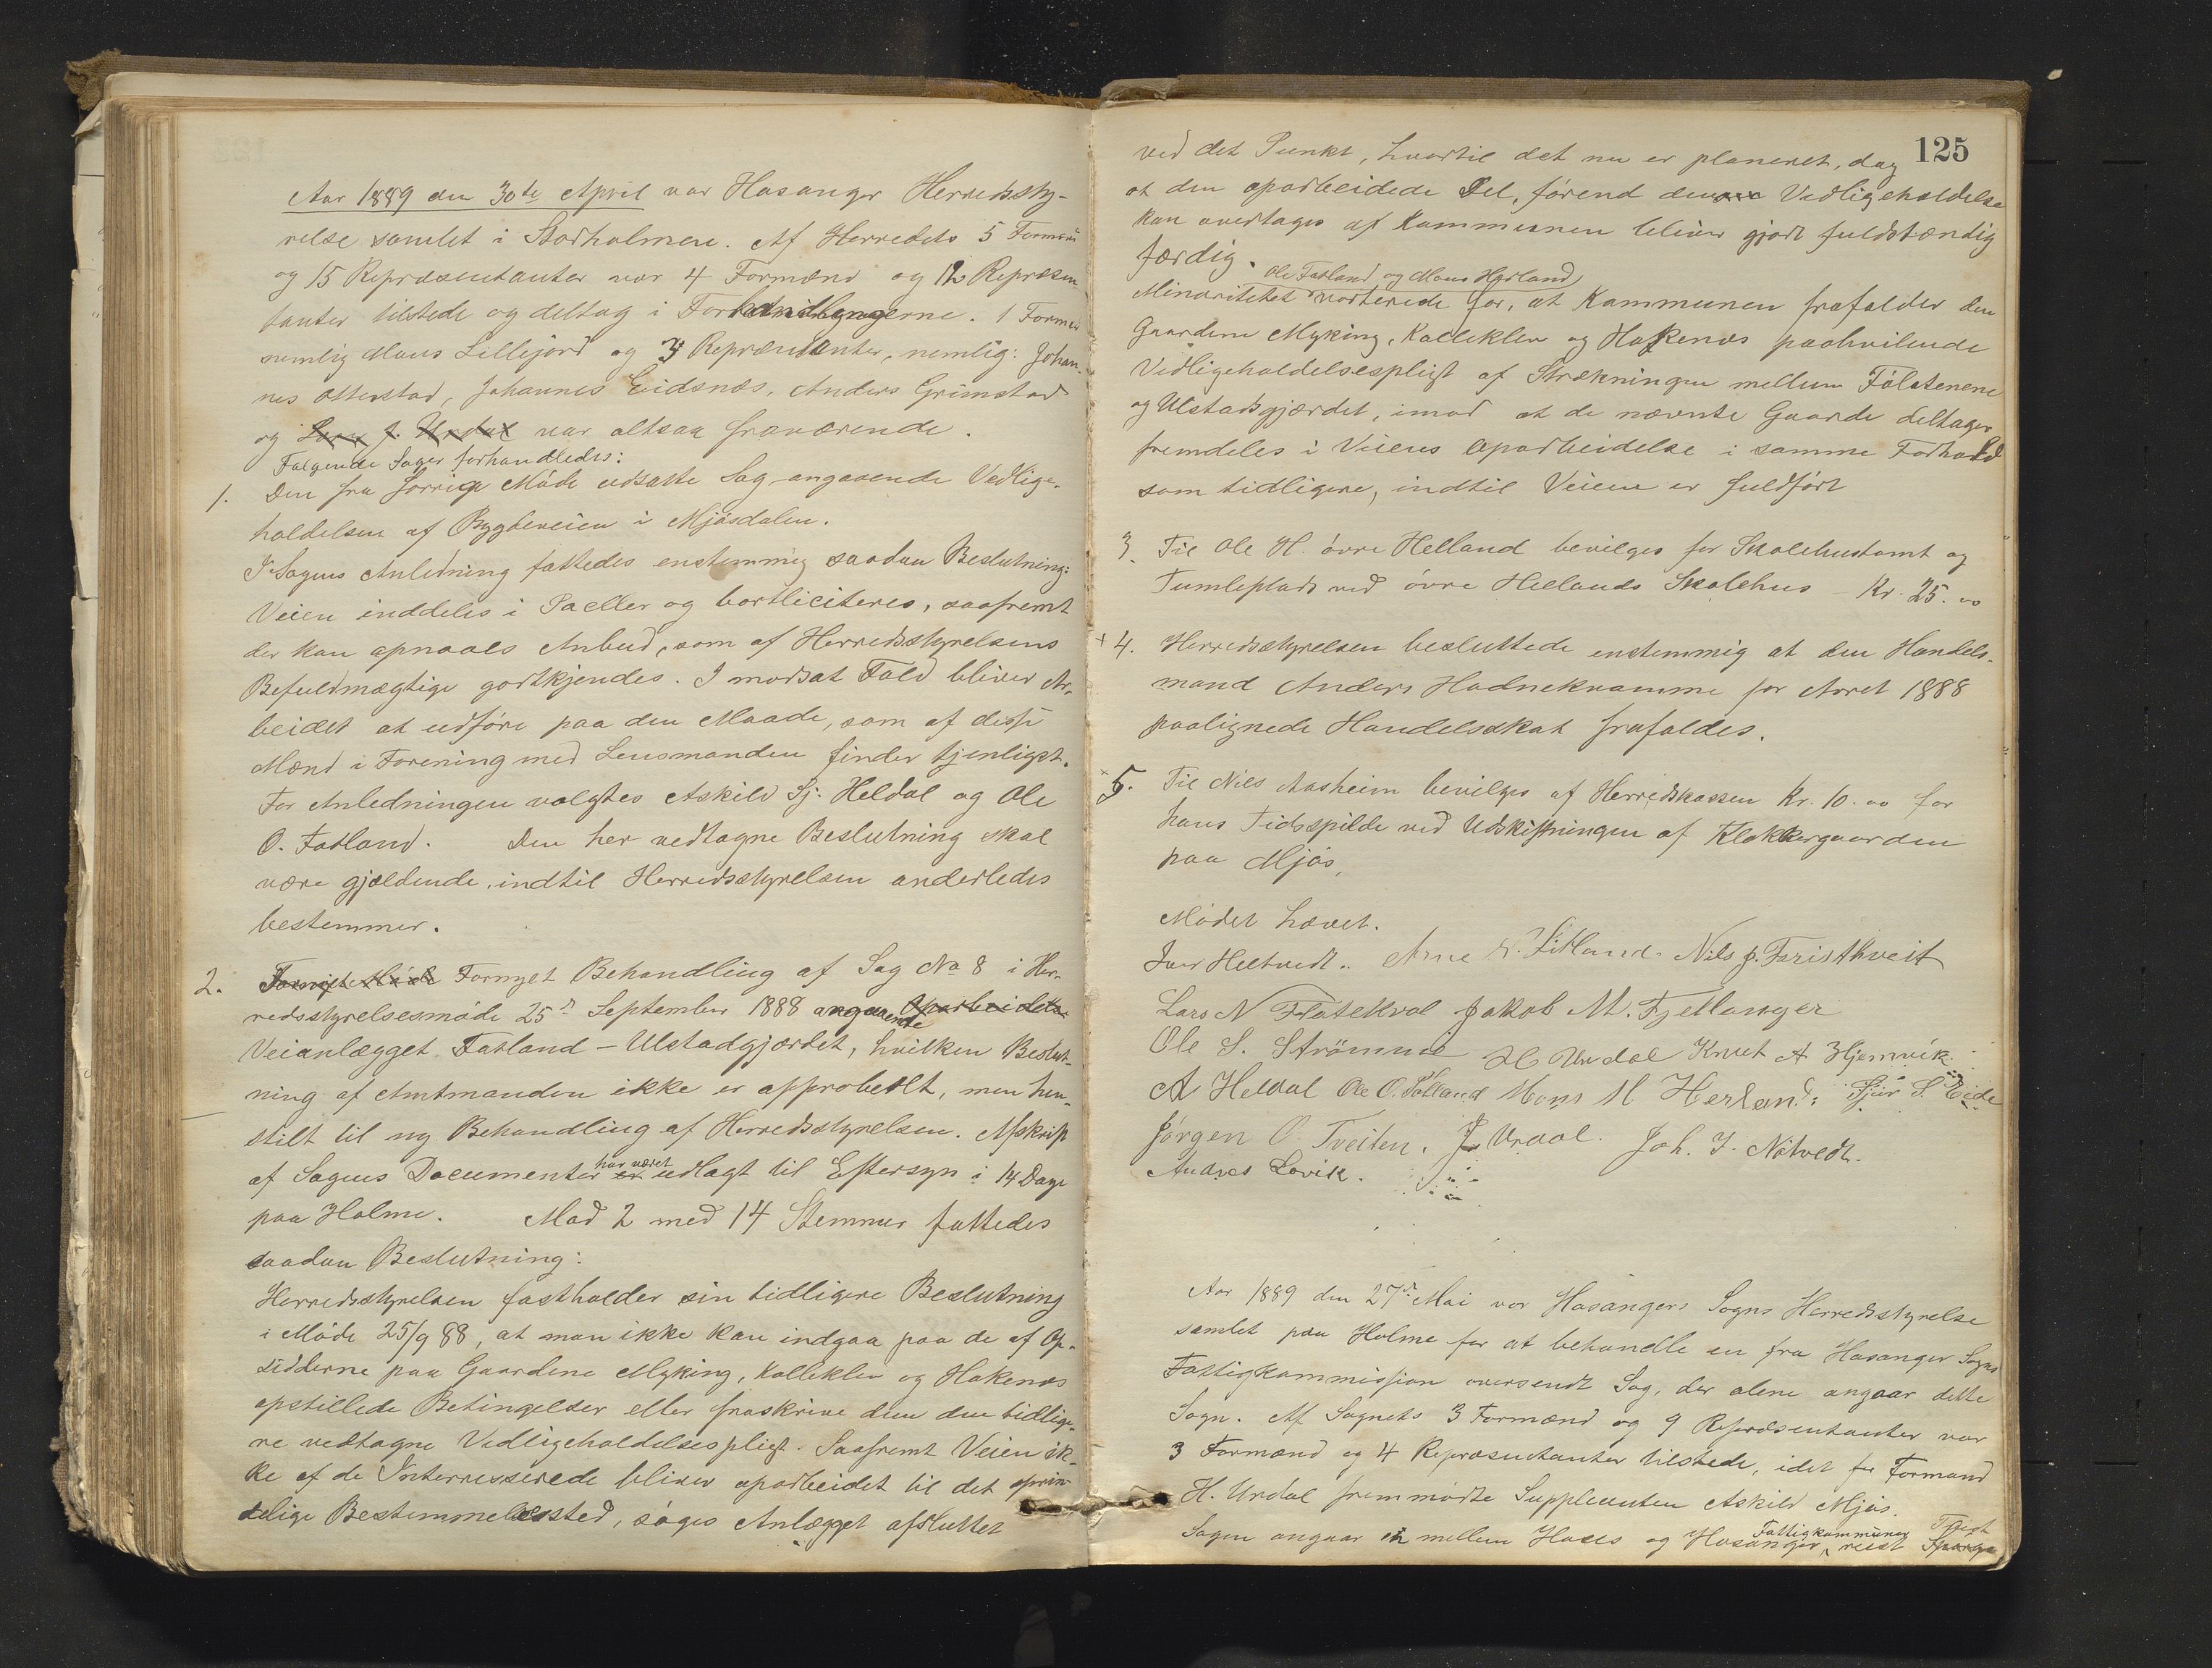 Aar 1889 den 30te April var Hosanger Herredssty-
relse samlet i Stadholmen. Af Herredets 5 Formænd
og 15 Repræsentanter var 4 Formænd og 12 Repræsen
tanter tilstede og deltog i Forhandlingerne. 1 Formand
nemlig Mons Lillejord og 3 Repræsentanter, nemlig: Johan-
nes Otterstad, Johannes Eidsnæs, Anders Grimstad
og Lars J. Urdal var altsaa fraværende.
Følgende Sager forhandledes:
1. Den fra forrige Møde udsatte Sag angaaende Vedlige-
holdelsen af Bygdeveien i Mjøsdalen.
I Sagens Anledning fattedes enstemmig saadan Beslutning:
Veien inddeles i Paeller og bortliciteres, saafremt
der kan opnaaes Anbud, som af Herredsstyrelsens
Befuldmægtige godtkjendes. I modsat Fald bliver Ar-
beidet at udføre paa den Maade, som af disse
Mænd i Forening med Lensmanden finder tjenligst.
For Anledningen valgtes Askild Sj. Heldal og Ole
O. Fatland. Den her vedtagne Beslutning skal
være gjældende, indtil Herredsstyrelsen anderledes
bestemmer.
2. Fornyet Behandling af Sag No 8 i Her-
redsstyrelsesmøde 25de September 1888 angaaende Oparbeidelse
Veianlægget Fatland - Ulstadgjærdet, hvilken Beslut-
ning af Amtmanden ikke er approbeert, men hen-
stilt til ny Behandling af Herredsstyrelsen. Afskrift
af Sagens Documenter er har været udlagt til Eftersyn i 14 Dage
paa Holme. Mod 2 med 14 Stemmer fattedes
saadan Beslutning:
Herredsstyrelsen fastholder sin tidligere Beslutning
i Møde 25/9 88, at man ikke kan indgaa paa de af Op-
sidderne paa Gaardene Myking, Kalleklev og Hakenæs
opstillede Betingelser eller fraskrive dem den tidlige-
re vedtagne Vedligeholdelsespligt. Saafremt Veien ik-
ke af de Interesserede bliver oparbeidet til det oprin-
delige Bestemmelsessted, søges Anlægget afsluttet
125
ved det Punkt, hvortil det nu er planeret, dog
at den oparbeidede Del, førend dens Vedligeholdelse
kan overtages af Kommunen bliver gjort fuldstændig
færdig.
Ole Fatland og Mons Herland
Minoritetet voterede for, at Kommunen frafalder den
Gaardene Myking, Kalleklev og Hakenæs paahvilende
Vedligeholdelsespligt af Strækningen mellem Fölstenene
og Ulstadsgjærdet, imod at de nævnte Gaarde deltager
fremdeles i Veiens Oparbeidelse i samme Forhold
som tidligere, indtil Veien er fuldført
3. Til Ole H. øvre Helland bevilges for Skolehustomt og
Tumleplads ved øvre Hellands Skolehus - Kr. 25.00
+ 4. Herredsstyrelsen besluttede enstemmig at den Handels-
mand Anders Hodnekvamme for Aaret 1888
paalignede Handelsskat frafaldes.
+ 5. Til Nils Aasheim bevilges af Herredskassen Kr. 10.00 for
hans Tidsspilde ved Udskiftningen af Klokkergaarden
paa Mjøs.
Mødet hævet.
Iver Heltvedt. Arne N. Litland. Nils J. Faristhveit
Lars N Flatekval Jakob M. Fjellanger
Ole S. Strømme H Urdal Knut A Hjemvik.
A Heldal Ole O. Fatland Mons M Herland: Sjur S. Eide
Jørgen O. Tveiten. J Urdal. Joh. J. Nøtvedt.
Andres Løvik.
Aar 1889 den 27de Mai var Hosangers Sogns Herredsstyrelse
samlet paa Holme for at behandle en fra Hosanger Sogns
Fattigkommission oversendt Sag, der alene angaar dette
Sogn. Af Sognets 3 Formænd og 9 Repræsentanter var
3 Formænd og 4 Repræsentanter tilstede, idet for Formand
H. Urdal fremmødte Suppleanten Askild Mjøs.
Sagen angaar en mellem Hosanger Fattigkommuner reist Tvist